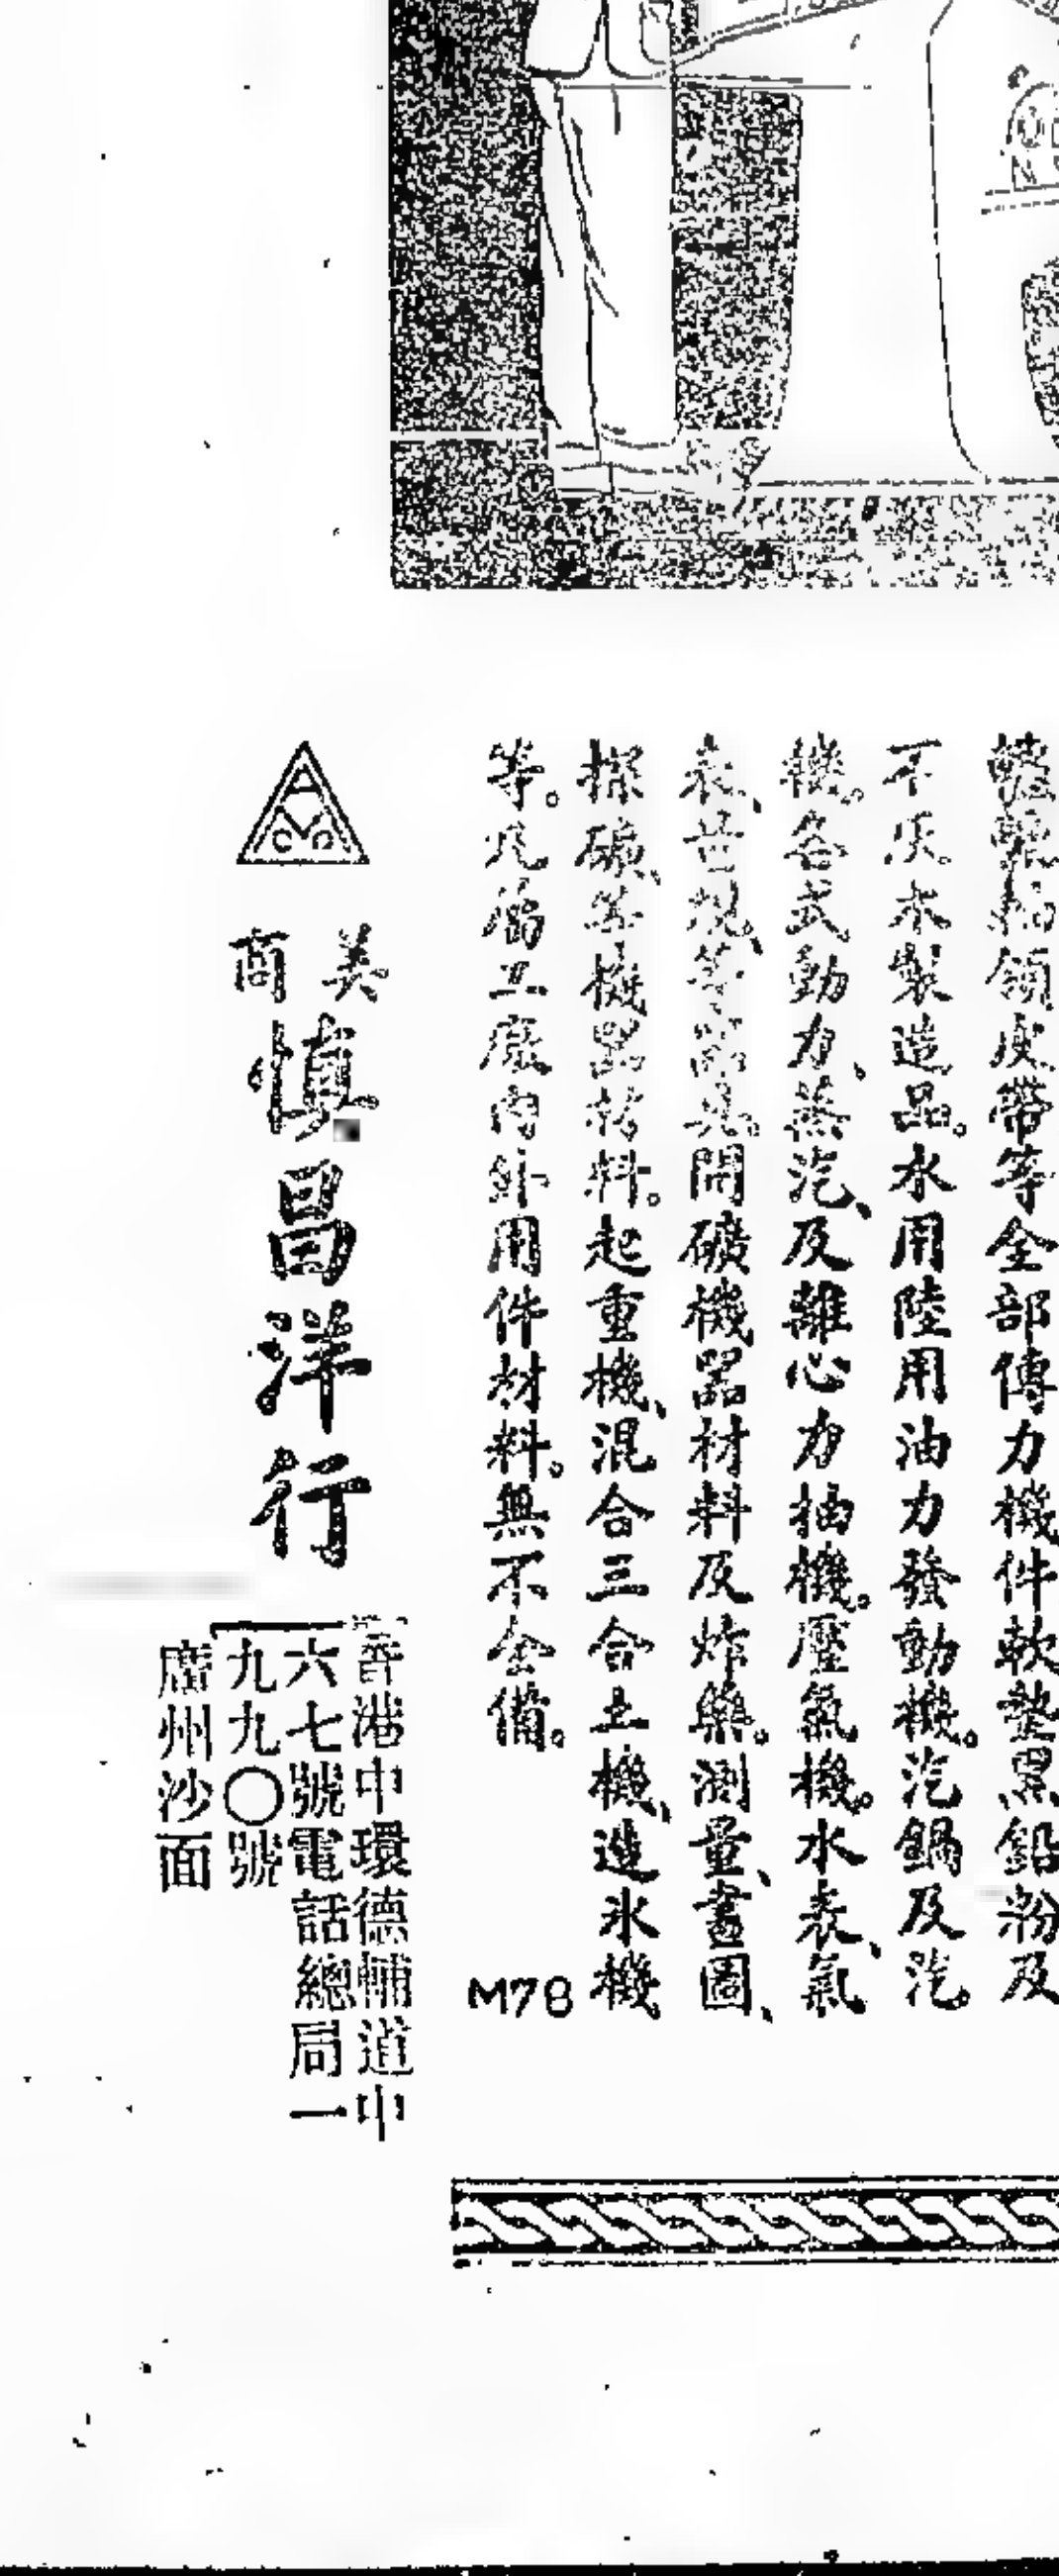 領皮帶等全部傳力機件軟墊黑鉛粉及
不灰木製造品。水用陸用油力發動機。汽鍋及汽
機。各式動力、蒸汽、及離心力抽機。壓氣機。水表、氣
表、等器具。開礦機器材料及炸藥。測量、畫圖、
探礦、等機器材料。起重機、混合三合土機、造氷機
等。凡屬工廠內外用件材料。無不全備。
M78
AMCO
美商
慎昌洋行
香港中環德輔道中
六七號電話總局一
九九〇號
廣州沙面